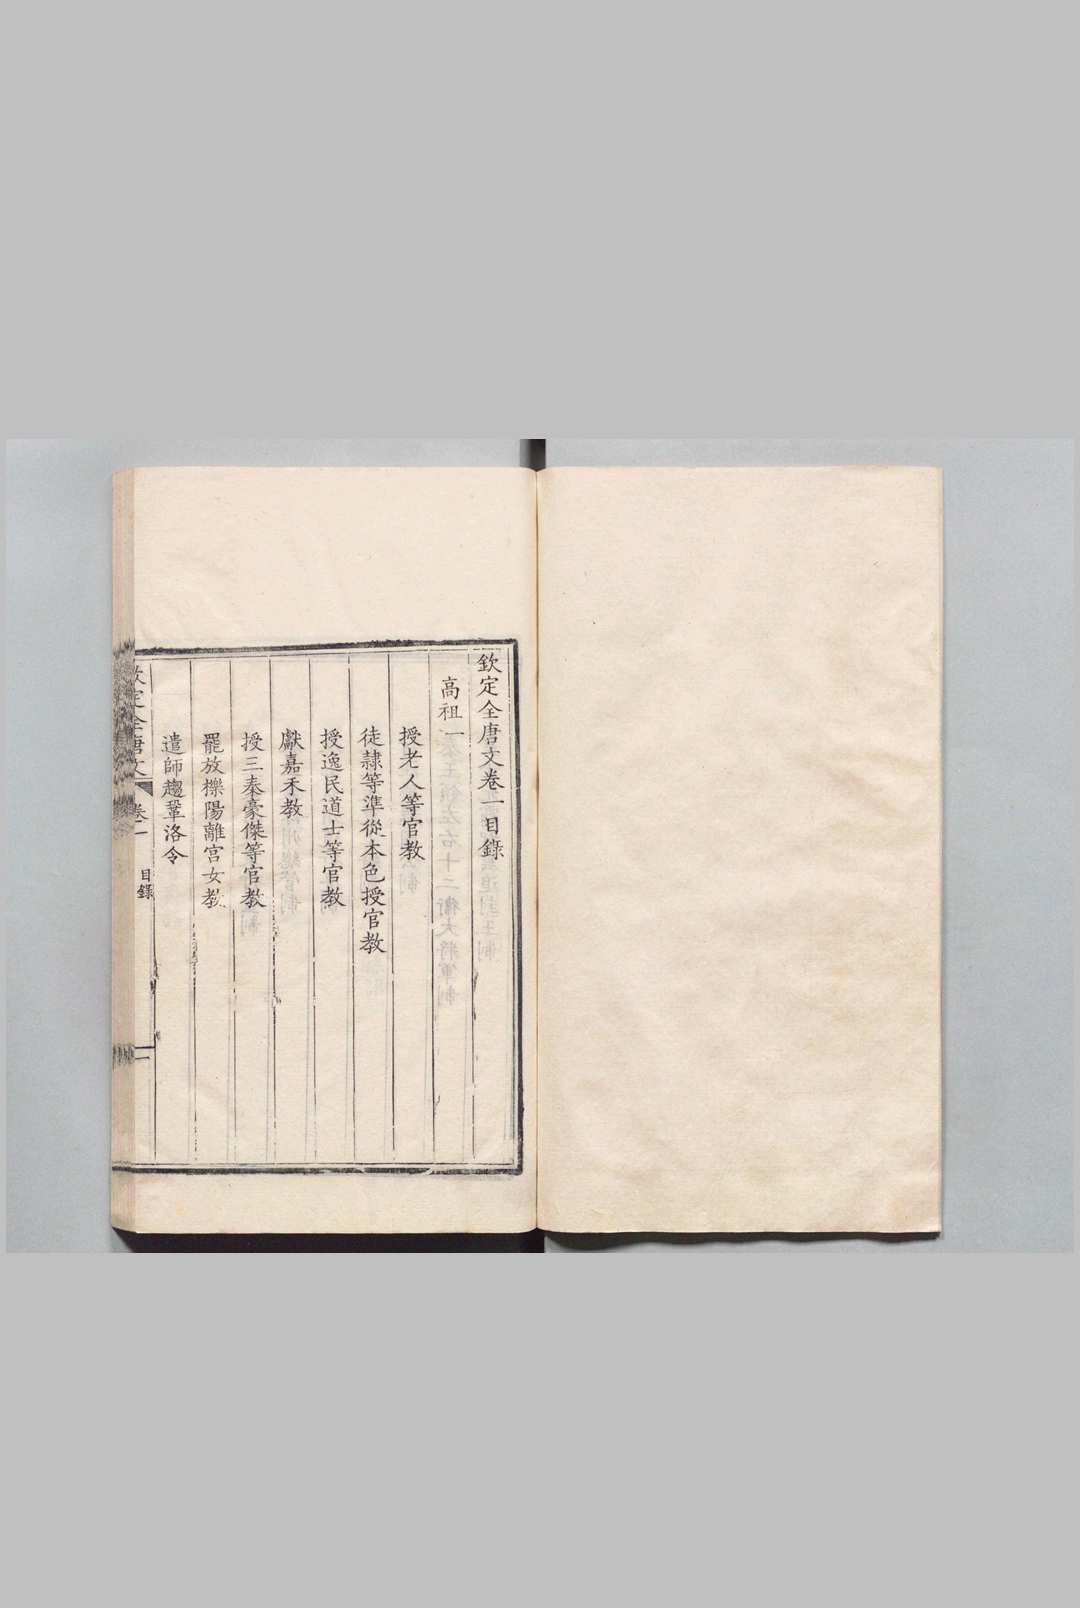 欽定全唐文卷一目錄
高祖一
授老人等官教
徒隸等準從本色授官教
授逸民道士等官教
獻嘉禾教
授三秦豪傑等官教
罷放櫟陽離宮女教
遣師趨鞏洛令
欽定全唐文 卷一 目錄 一